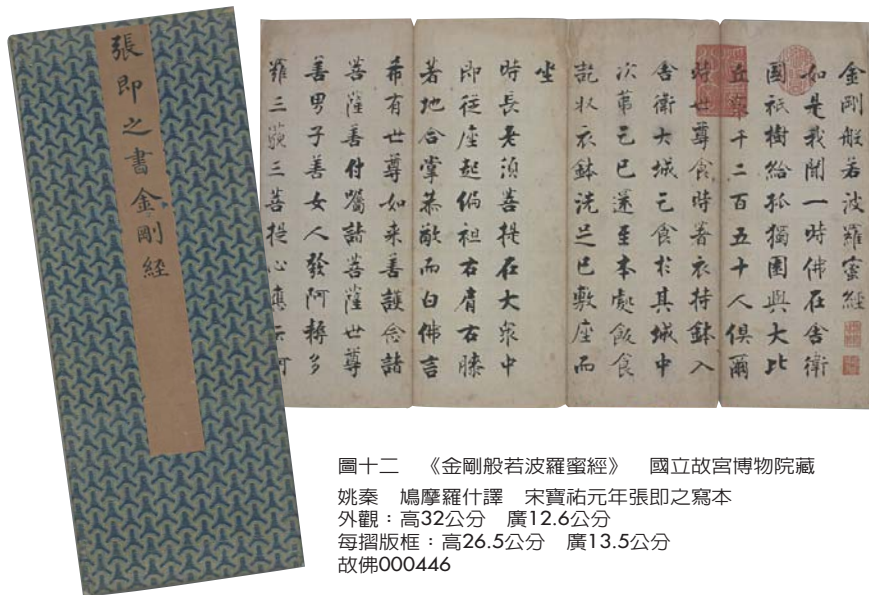 張即之書金剛經
金剛般若波羅蜜經
如是我聞一時佛在舍衛
國祇樹給孤獨園與大比
丘眾千二百五十人俱爾
時世尊食時著衣持鉢入
舍衛大城乞食於其城中
次第乞已還至本處飯食
訖收衣鉢洗足已敷座而
坐
時長老須菩提在大眾中
即從座起偏袒右肩右膝
著地合掌恭敬而白佛言
希有世尊如来善護念諸
菩薩善付囑諸菩薩世尊
善男子善女人發阿耨多
羅三藐三菩提心應云何
圖十二　《金剛般若波羅蜜經》　國立故宮博物院藏
姚秦　鳩摩羅什譯　宋寶祐元年張即之寫本
外觀：高32公分　廣12.6公分
每摺版框：高26.5公分　廣13.5公分
故佛000446